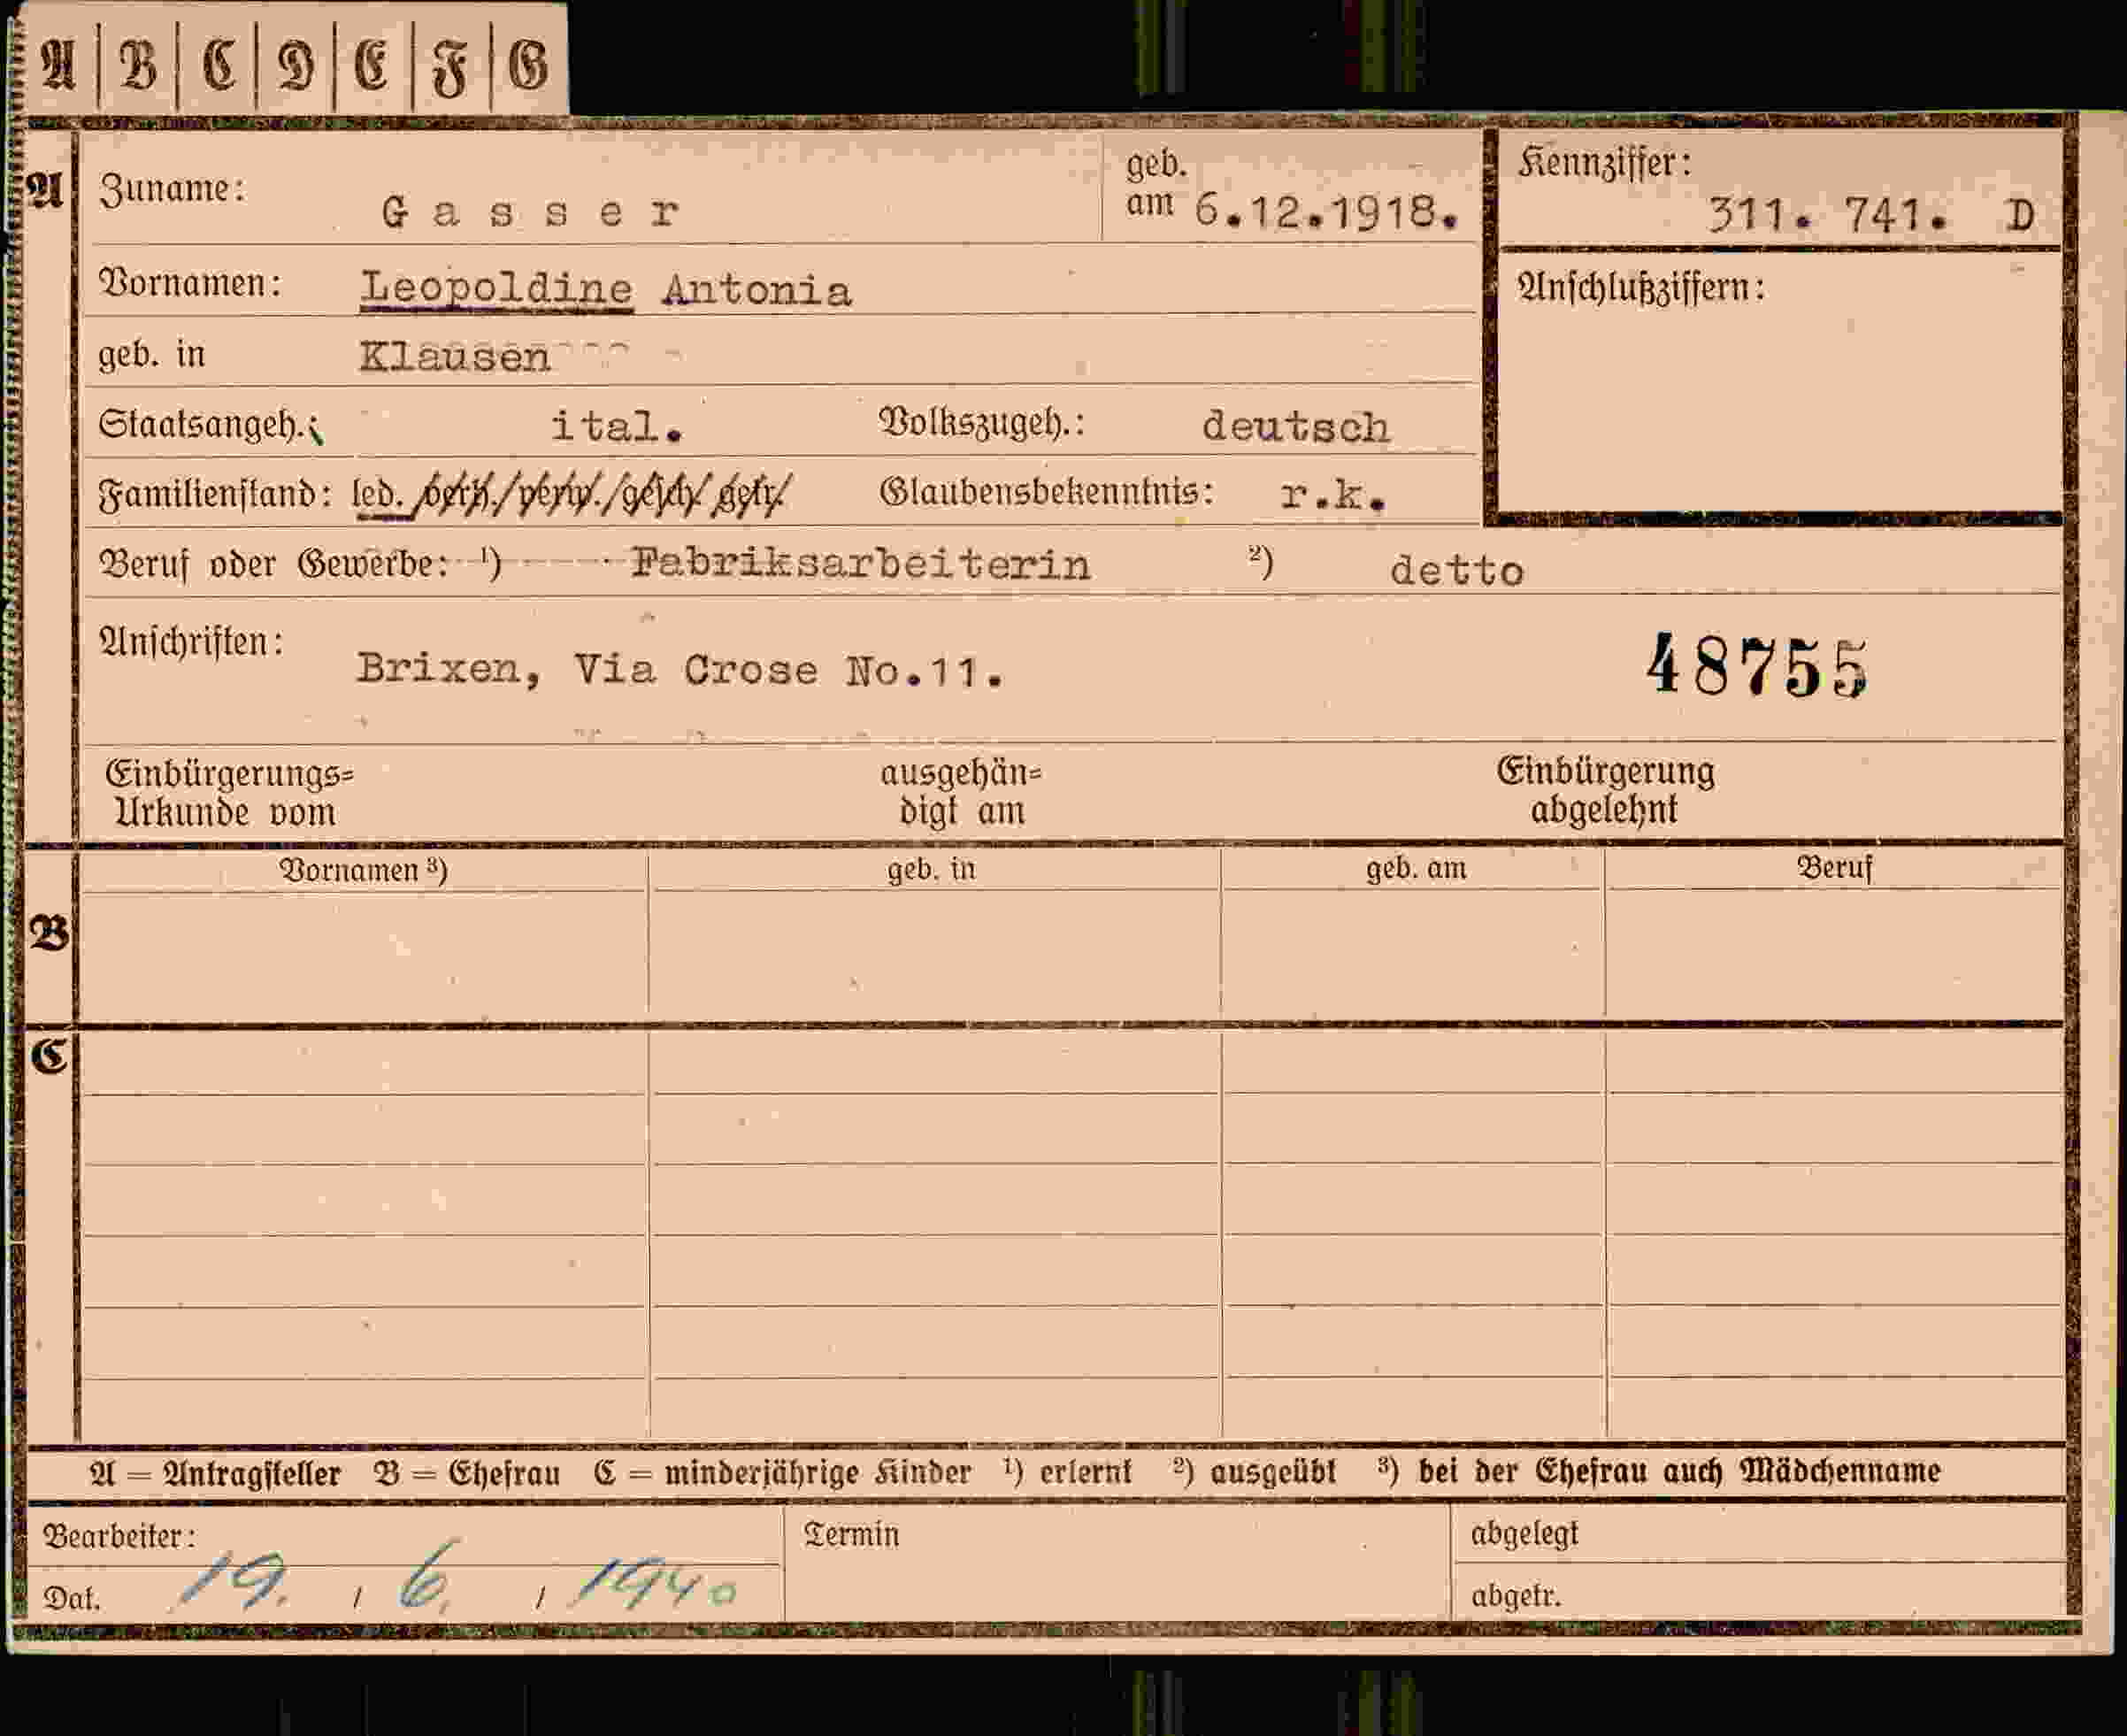 A | B | C | D | E | F | G
A
Zuname: Gasser geb. am 6.12.1918.
Kennziffer: 311. 741. D
Vornamen: Leopoldine Antonia
Anschlußziffern:
geb. in Klausen
Staatsangeh.: ital. Volkszugeh.: deutsch
Familienstand: led. /verh./verw./gesch/ getr/ Glaubensbekenntnis: r.k.
Beruf oder Gewerbe: ¹) Fabriksarbeiterin ²) detto
Anschriften: Brixen, Via Crose No.11. 48755
Einbürgerungs= ausgehän= Einbürgerung
Urkunde vom digt am abgelehnt
Vornamen ³) geb. in geb. am Beruf
B
C
A = Antragsteller B = Ehefrau C = minderjährige Kinder ¹) erlernt ²) ausgeübt ³) bei der Ehefrau auch Mädchenname
Bearbeiter: Termin abgelegt
Dat. 19. / 6. / 1940 abgetr.